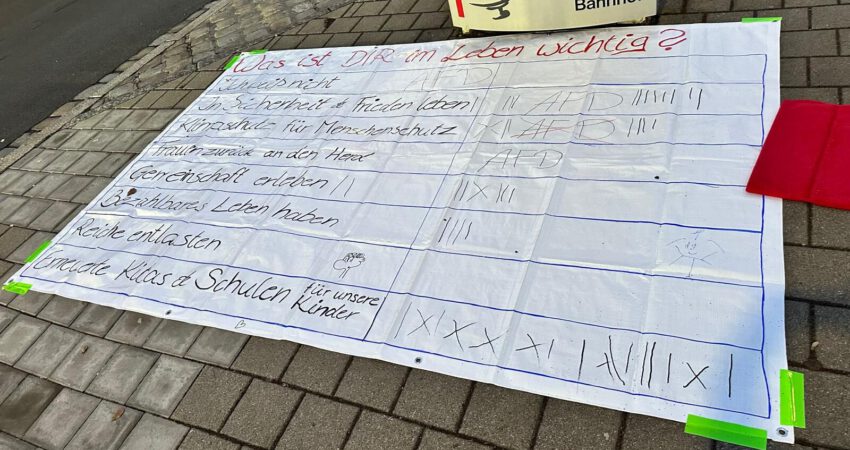 Bahnhof
Was ist DIR im Leben wichtig?
Ich weiß nicht AFD
In Sicherheit & Frieden leben AFD
Klimaschutz für Menschenschutz AFD
Frauen zurück an den Herd AFD
Gemeinschaft erleben
Bezahlbares Leben haben
Reiche entlasten
Erneuerte Kitas & Schulen für unsere
Kinder